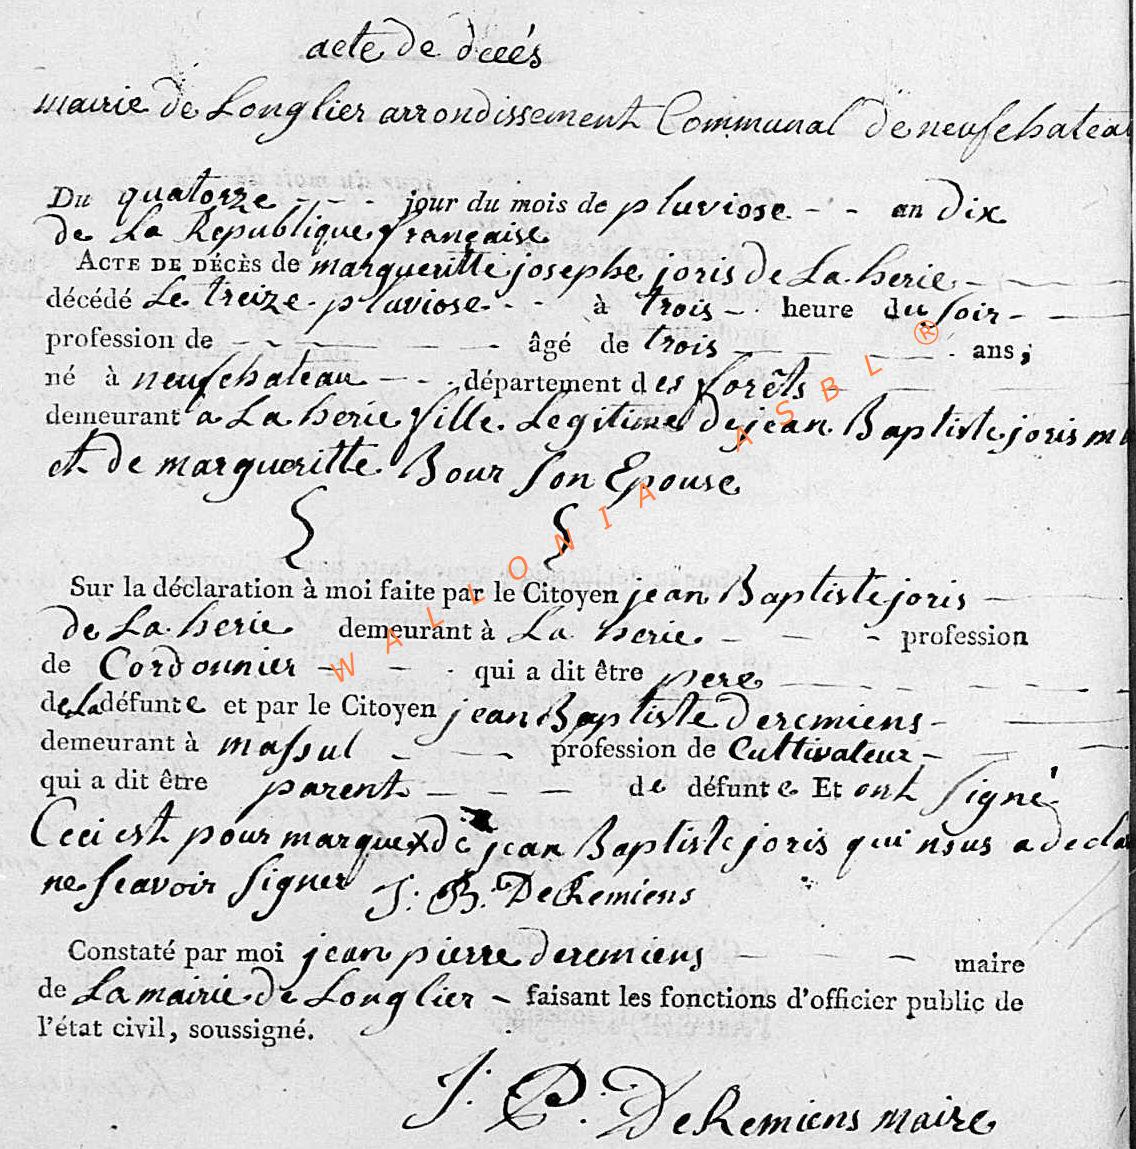 acte de décés
mairie de Longlier arrondissement Communal de neufchateau
Du quatorze jour du mois de pluviose an dix
de La Republique française
ACTE DE DÉCÈS de margueritte josephe joris de La herie
décédé Le treize pluviose à trois heure du soir
profession de âgé de trois ans;
né à neufchateau département des forêts
demeurant a La herie fille Legitime de jean Baptiste joris
et de margueritte Bour son Epouse
Sur la déclaration à moi faite par le Citoyen jean Baptiste joris
de La herie demeurant à La herie profession
de Cordonnier qui a dit être pere
de la défunte et par le Citoyen jean Baptiste deremiens
demeurant à massul profession de Cultivateur
qui a dit être parent de défunte Et ont signé
Ceci est pour marque x de jean Baptiste joris qui nous a decla
ne scavoir signer J: B: DeRemiens
Constaté par moi jean pierre deremiens maire
de La mairie de Longlier faisant les fonctions d'officier public de
l'état civil, soussigné.
J: P: DeRemiens maire
WALLONIA ASBL ®